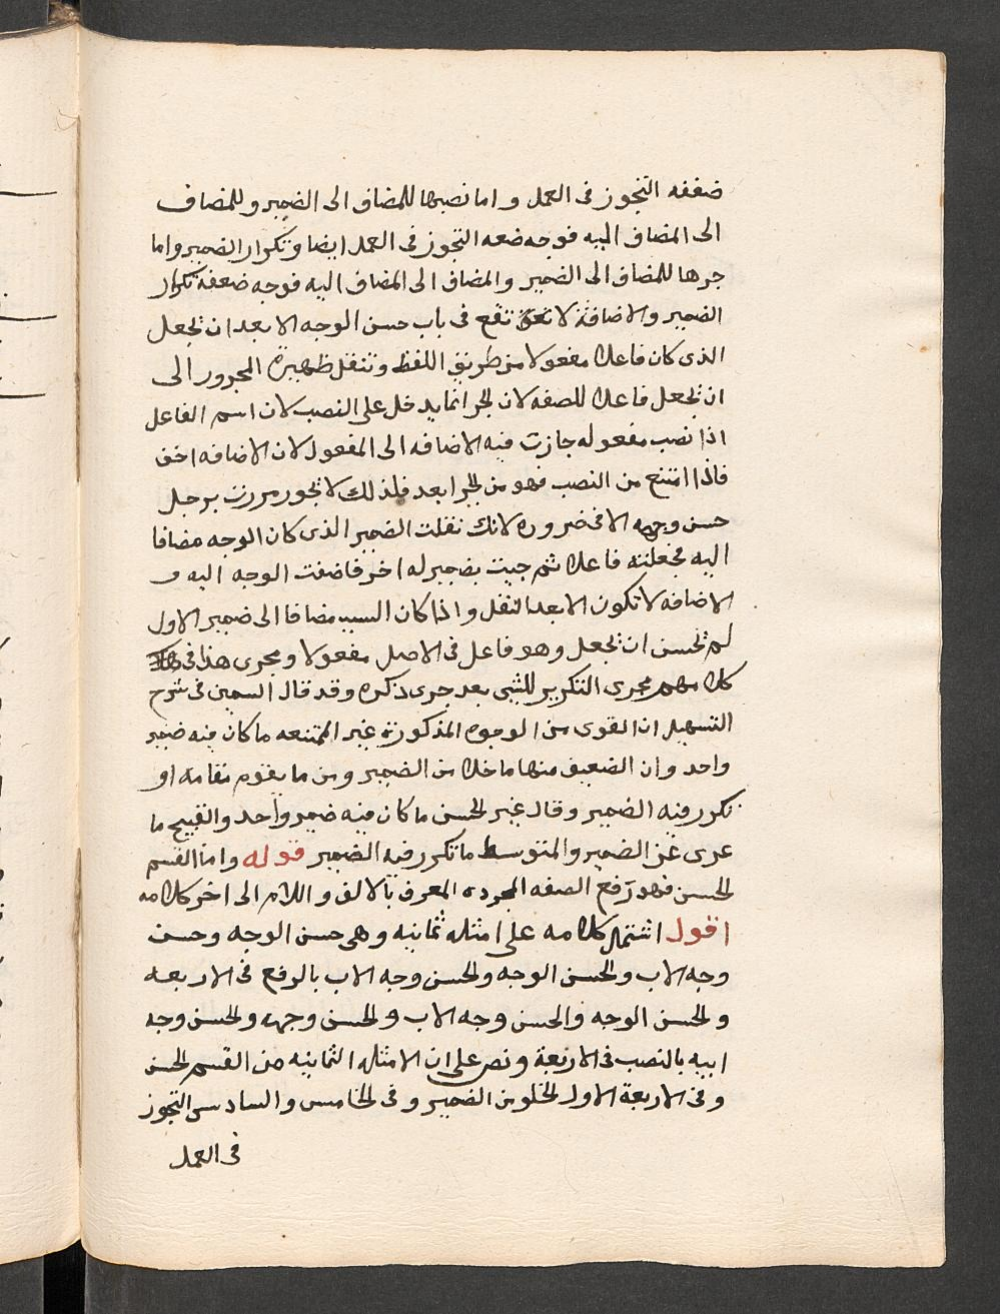 ضعفه التجوز فى العمل واما نصبها للمضاف الى الضمير وللمضاف
الى المضاف اليه فوجه ضعه التجوز فى العمل ايضا وتكرار الضمير واما
جرها للمضاف الى الضمير والمضاف الى المضاف اليه فوجه ضعفه تكرار
الضمير والاضافة لا تقع فى باب حسن الوجه الا بعد ان تجعل
الذى كان فاعلا مفعولا من طريق اللفظ وتنقل المجرور الى
ان تجعل فاعلا للصفه لان الجر انما يدخل على النصب لان اسم الفاعل
اذا نصب مفعوله جازت فيه الاضافه الى المفعول لان الاضافه اخف
فاذا امتنع من النصب فهو من الجر ابعد فلذلك لا تجوز مررت برجل
حسن وجهه الا فى ضروره لانك نقلت الضمير الذى كان الوجه مضافا
اليه فجعلته فاعلا ثم جيت بضمير له اخر فاضفت الوجه اليه و
الاضافه لا تكون الا بعد النقل واذا كان السبب مضافا الى ضمير الاول
لم تحسن ان تجعل وهو فاعل فى الاصل مفعولا ومجرى هذا فى
كلامهم مجرى التكرير للشى بعد جرى ذكره وقد قال السمين فى شرح
التسهيل ان القوى من الوجوه المذكورة غير الممتنعه ما كان فيه ضمير
واحد وان الضعيف منها ما خلا من الضمير ومن ما يقوم مقامه او
تكرر فيه الضمير وقال غيره الحسن ما كان فيه ضمير واحد والقبيح ما
عرى عن الضمير والمتوسط ما تكرر فيه الضمير قوله واما القسم
الحسن فهو رفع الصفه المجرده المعرف بالالف واللام الى اخر كلامه
اقول اشتمل كلامه على امثله ثمانيه وهى حسن الوجه وحسن
وجه الاب والحسن الوجه والحسن وجه الاب بالرفع فى الاربعه
والحسن الوجه والحسن وجه الاب والحسن وجهه والحسن وجه
ابيه بالنصب فى الاربعة ونص على ان الامثله الثمانيه من القسم الحسن
وفى الاربعة الاول لخلو من الضمير وفى الخامس والسادس التجوز
فى العمل